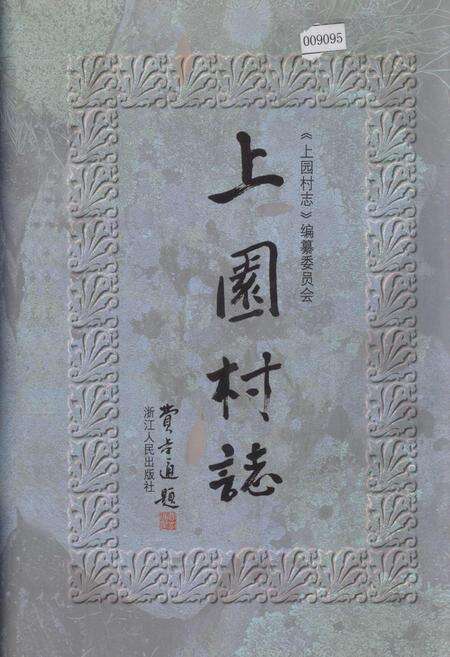 009095
《上园村志》编纂委员会
上園村誌
費孝通題
浙江人民出版社